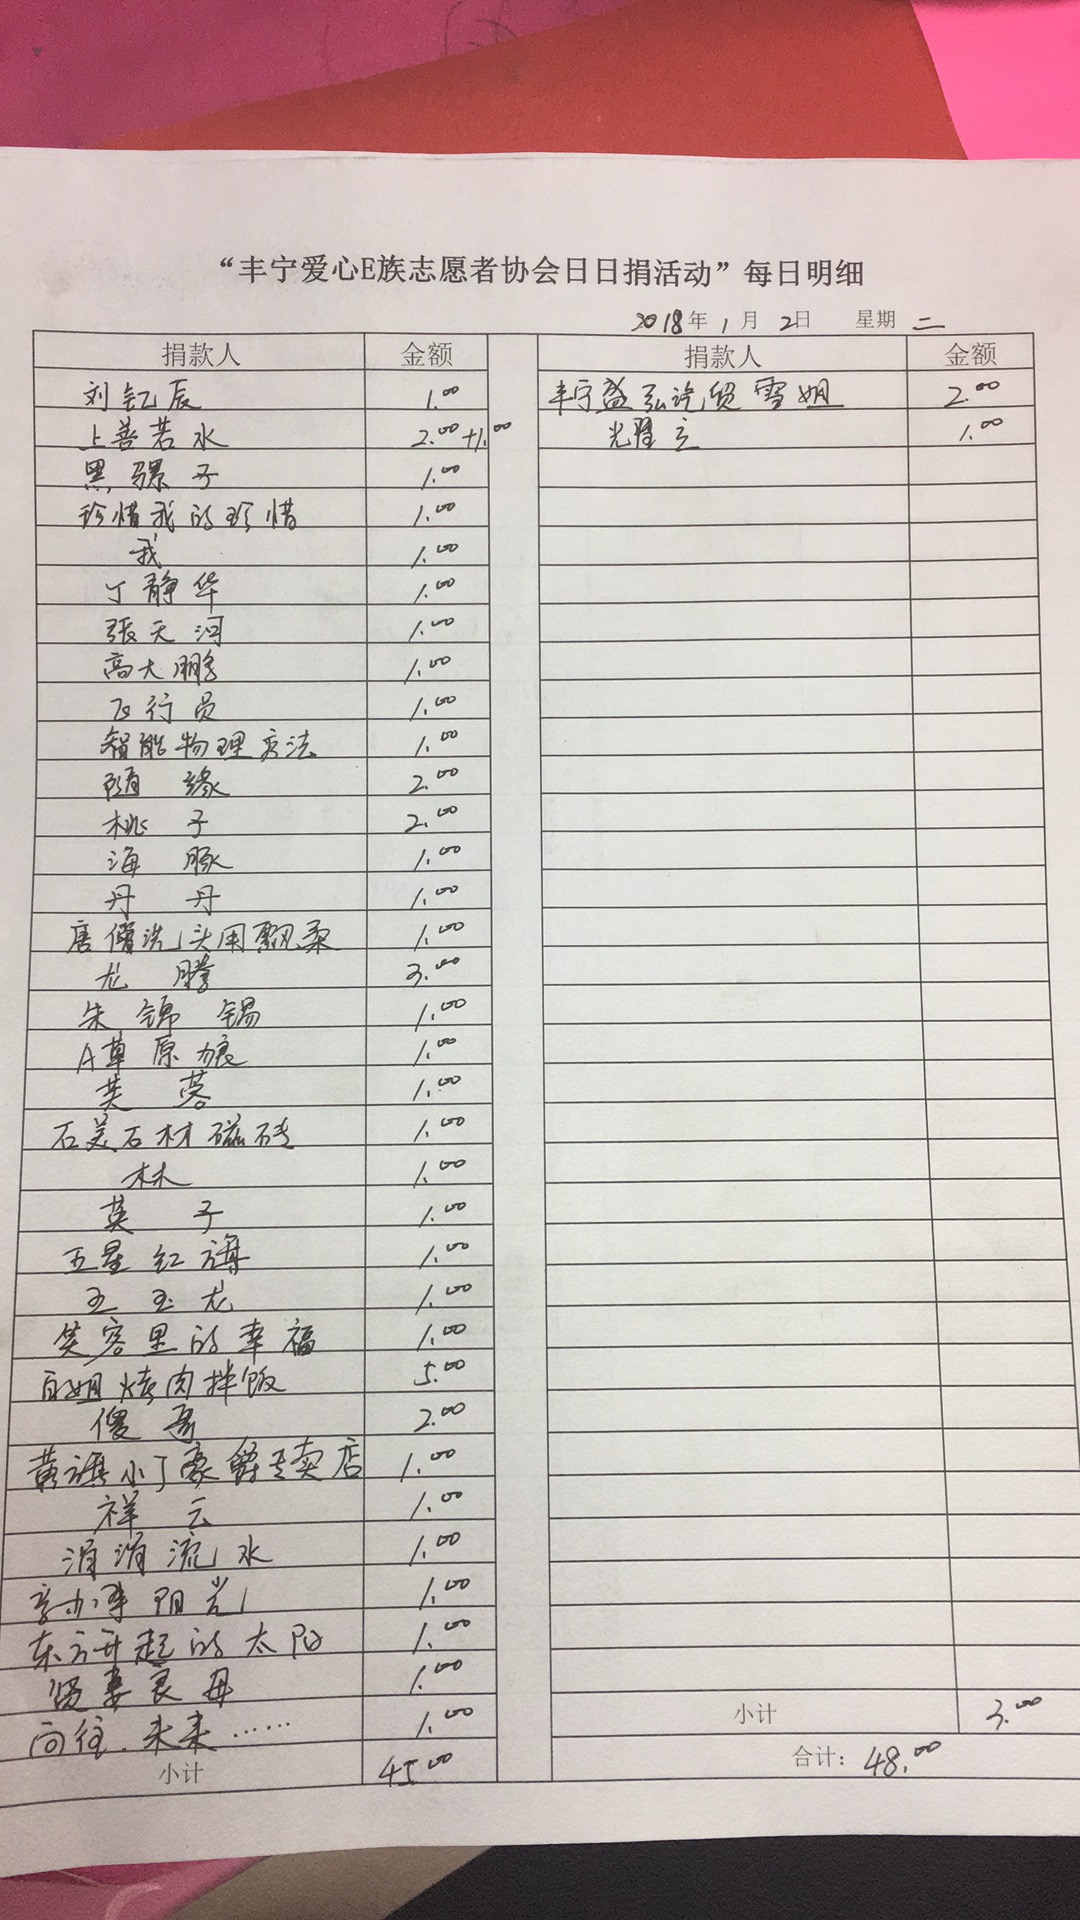 “丰宁爱心E族志愿者协会日日捐活动”每日明细
2018年1月2日 星期二
捐款人 金额 捐款人 金额
刘钇辰 1.00 丰宁盛弘汽贸雪姐 2.00
上善若水 2.00+1.00 光 1.00
黑骡子 1.00
珍惜我的珍惜 1.00
我 1.00
丁静华 1.00
張天河 1.00
高大鹏 1.00
飞行员 1.00
智能物理疗法 1.00
随缘 2.00
桃子 2.00
海豚 1.00
丹丹 1.00
唐僧洗头用飘柔 1.00
龙腾 3.00
朱锦锡 1.00
A草原狼 1.00
芙蓉 1.00
石美石材磁砖 1.00
林 1.00
英子 1.00
五星红旗 1.00
王玉龙 1.00
笑容里的幸福 1.00
百姐烤肉拌饭 5.00
傻哥 2.00
黄旗小丁豪爵专卖店 1.00
祥云 1.00
涓涓流水 1.00
阳光 1.00
东方升起的太阳 1.00
贤妻良母 1.00
向往.未来…… 1.00
小计 3.00
小计 45.00 合计：48.00